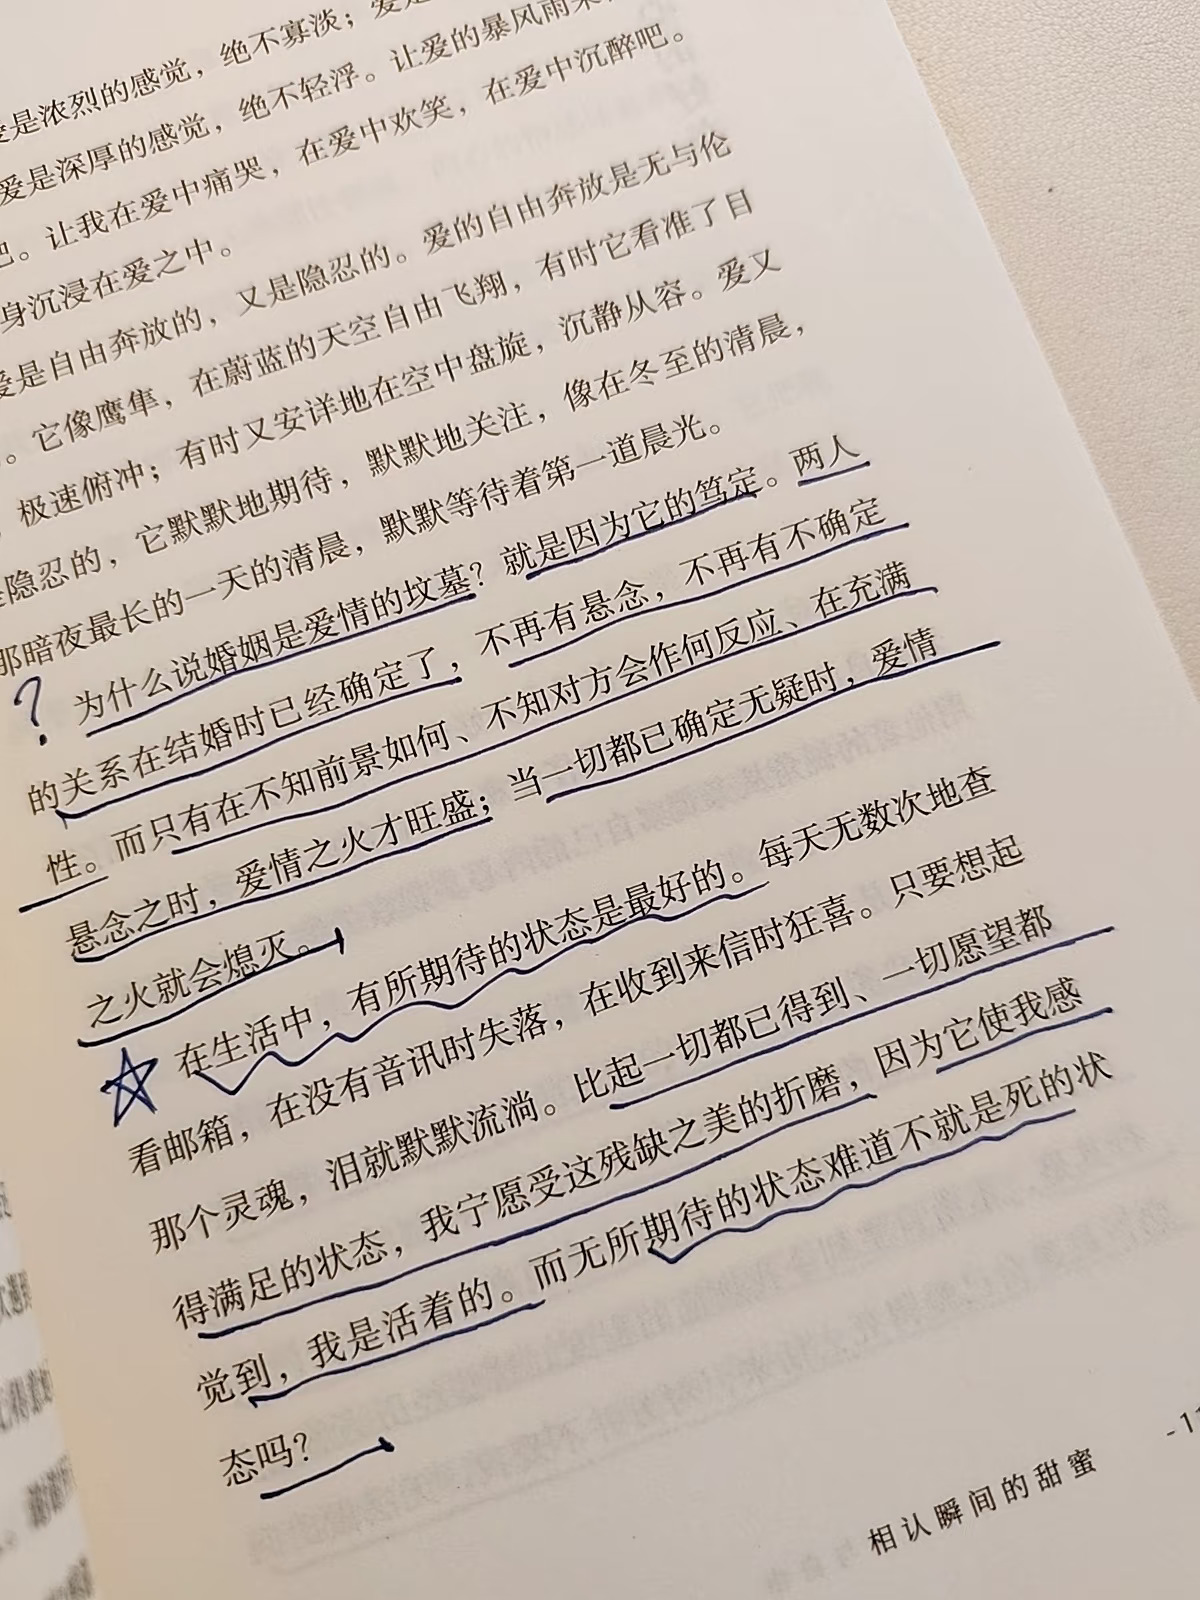 是浓烈的感觉，绝不寡淡；爱是
爱是深厚的感觉，绝不轻浮。让爱的暴风雨来
吧。让我在爱中痛哭，在爱中欢笑，在爱中沉醉吧。
身沉浸在爱之中。
爱是自由奔放的，又是隐忍的。爱的自由奔放是无与伦
。它像鹰隼，在蔚蓝的天空自由飞翔，有时它看准了目
，极速俯冲；有时又安详地在空中盘旋，沉静从容。爱又
是隐忍的，它默默地期待，默默地关注，像在冬至的清晨，
那暗夜最长的一天的清晨，默默等待着第一道晨光。
? 为什么说婚姻是爱情的坟墓？就是因为它的笃定。两人
的关系在结婚时已经确定了，不再有悬念，不再有不确定
性。而只有在不知前景如何、不知对方会作何反应、在充满
悬念之时，爱情之火才旺盛；当一切都已确定无疑时，爱情
之火就会熄灭。
在生活中，有所期待的状态是最好的。每天无数次地查
看邮箱，在没有音讯时失落，在收到来信时狂喜。只要想起
那个灵魂，泪就默默流淌。比起一切都已得到、一切愿望都
得满足的状态，我宁愿受这残缺之美的折磨，因为它使我感
觉到，我是活着的。而无所期待的状态难道不就是死的状
态吗？
相认瞬间的甜蜜